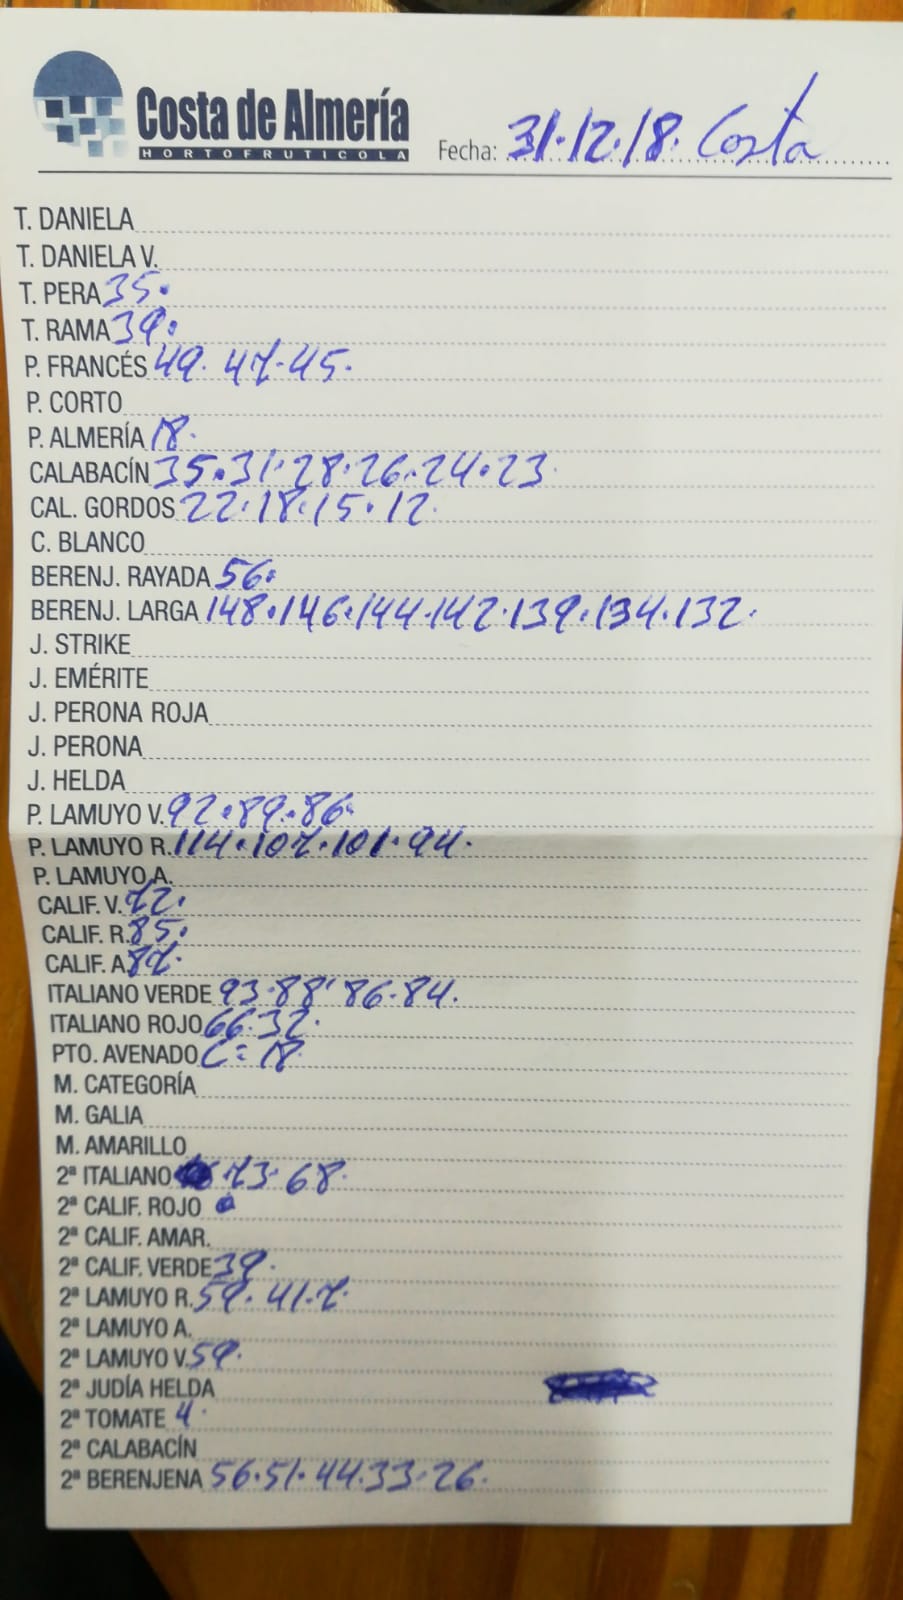 Costa de Almería
HORTOFRUTICOLA
Fecha: 31·12·18· Costa
T. DANIELA
T. DANIELA V.
T. PERA 35·
T. RAMA 39·
P. FRANCÉS 49· 47·45·
P. CORTO
P. ALMERÍA 18·
CALABACÍN 35·31·28·26·24·23·
CAL. GORDOS 22·18·15·12·
C. BLANCO
BERENJ. RAYADA 56·
BERENJ. LARGA 148·146·144·142·139·134·132·
J. STRIKE
J. EMÉRITE
J. PERONA ROJA
J. PERONA
J. HELDA
P. LAMUYO V. 92·89·86·
P. LAMUYO R. 114·107·101·94·
P. LAMUYO A.
CALIF. V. 72·
CALIF. R. 85·
CALIF. A. 87·
ITALIANO VERDE 93·88·86·84·
ITALIANO ROJO 66·32·
PTO. AVENADO C=18·
M. CATEGORÍA
M. GALIA
M. AMARILLO
2ª ITALIANO 73·68·
2ª CALIF. ROJO
2ª CALIF. AMAR.
2ª CALIF. VERDE 39·
2ª LAMUYO R. 59·41·7·
2ª LAMUYO A.
2ª LAMUYO V. 59·
2ª JUDÍA HELDA
2ª TOMATE 4·
2ª CALABACÍN
2ª BERENJENA 56·51·44·33·26·